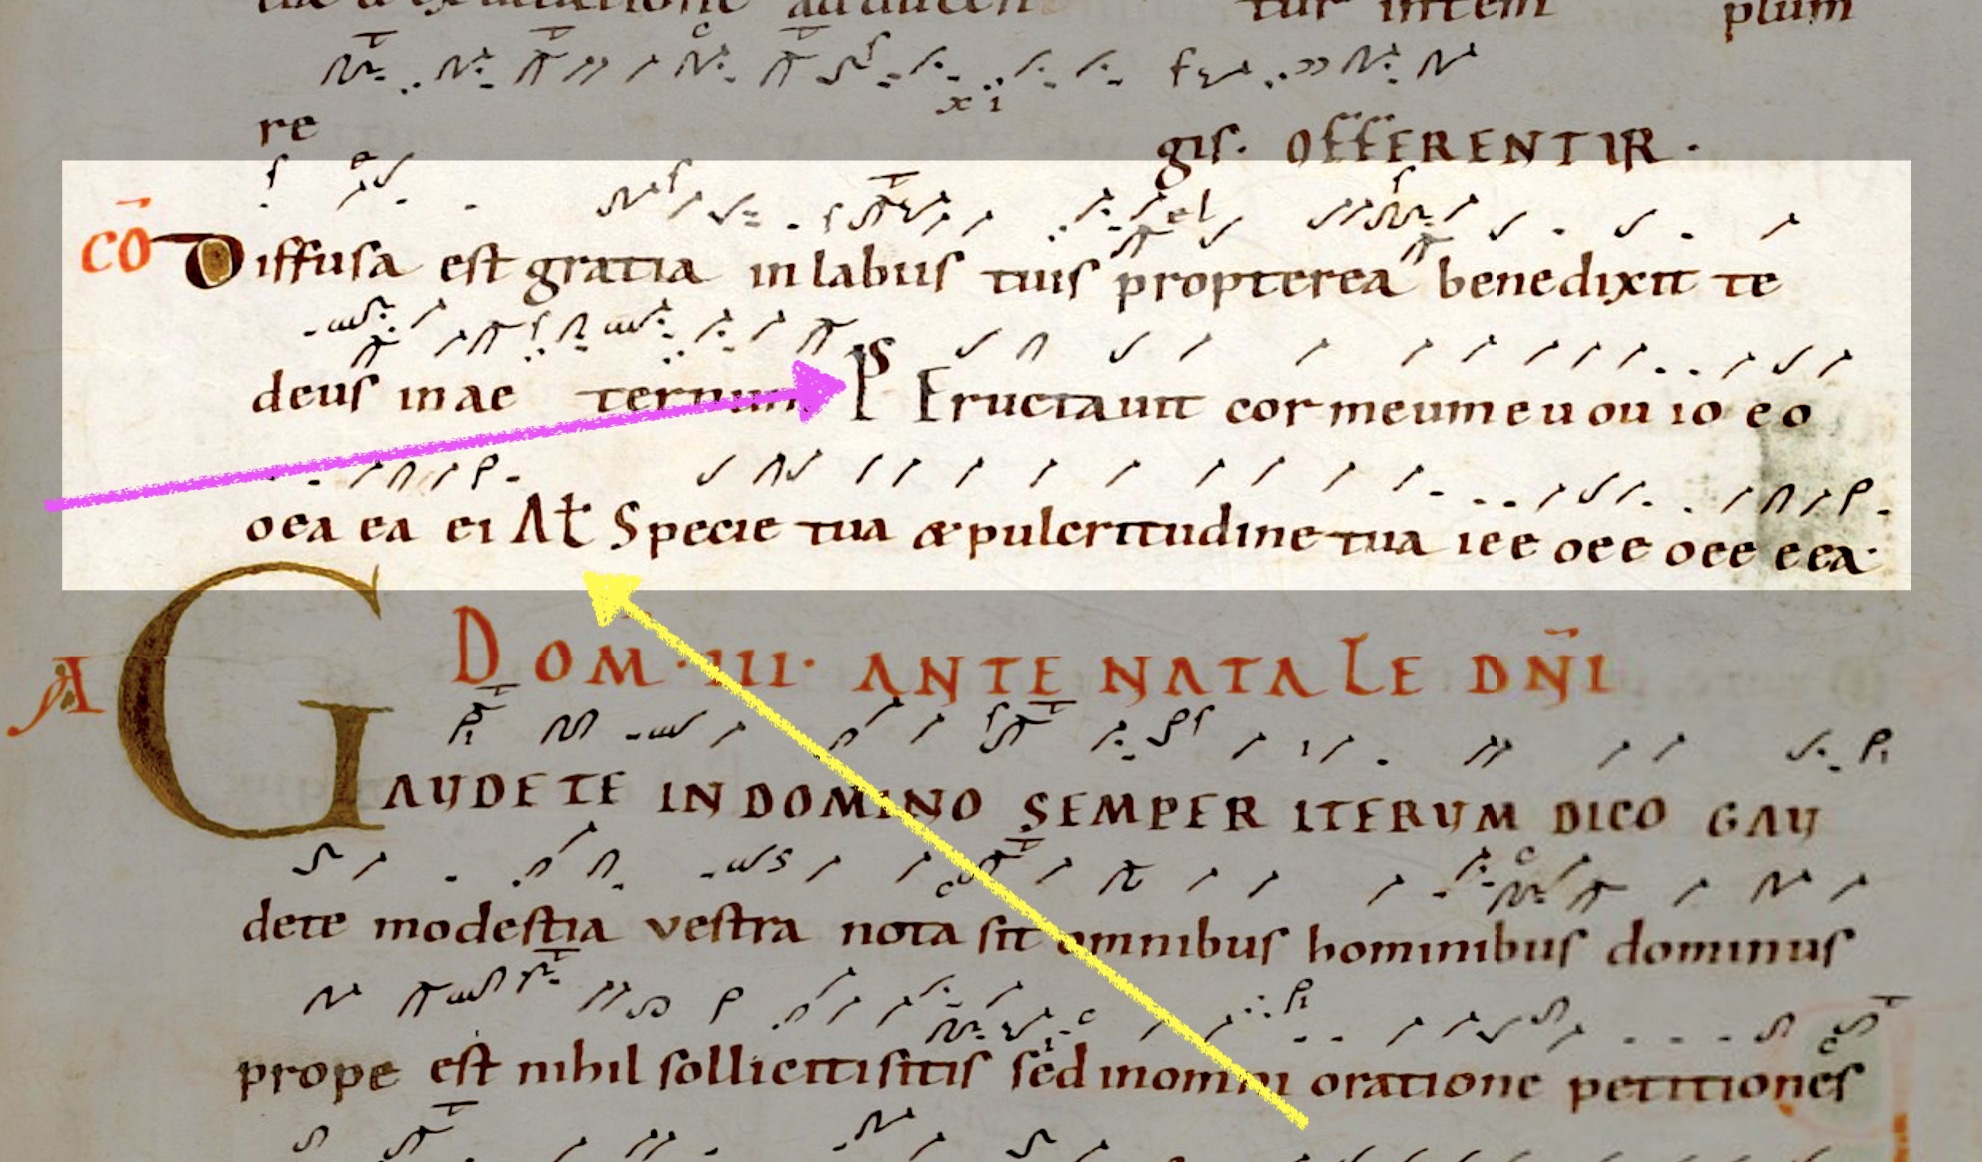 re gis. OFFERENTUR.
CŌ Diffusa est gratia in labiis tuis propterea benedixit te
deus in ae ternum PS Eructauit cor meum e u o u io e o
o e a e a e i Alt Specie tua & pulcritudine tua i e e o e e o e e e e a
DOM·III· ANTE NATALE DN̄I
A GAUDETE IN DOMINO SEMPER ITERUM DICO GAU
dete modestia vestra nota sit omnibus hominibus dominus
prope est nihil solliciti sitis sed in omni oratione petitiones